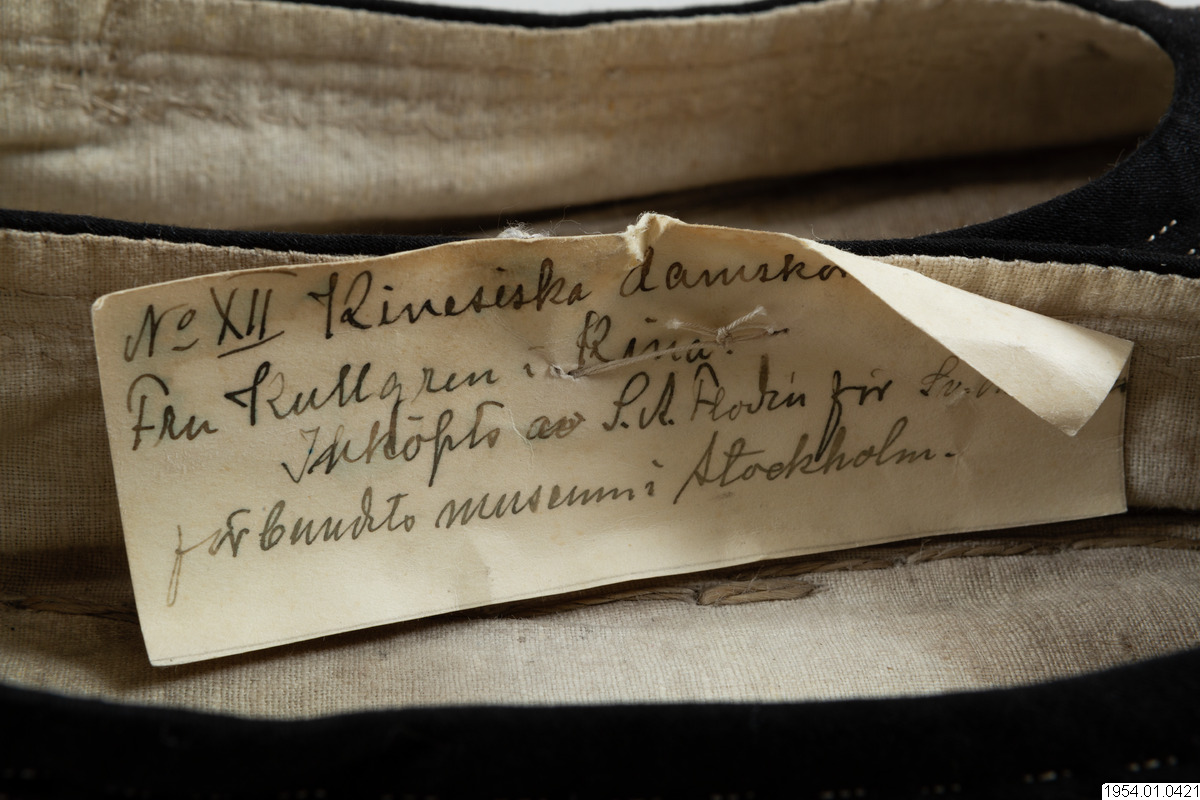 No XII Kinesiska damskor
Fru Kullgren i Kina.
Inköpts av S.A. Flodin för
förbundets museum i Stockholm.
1954.01.0421